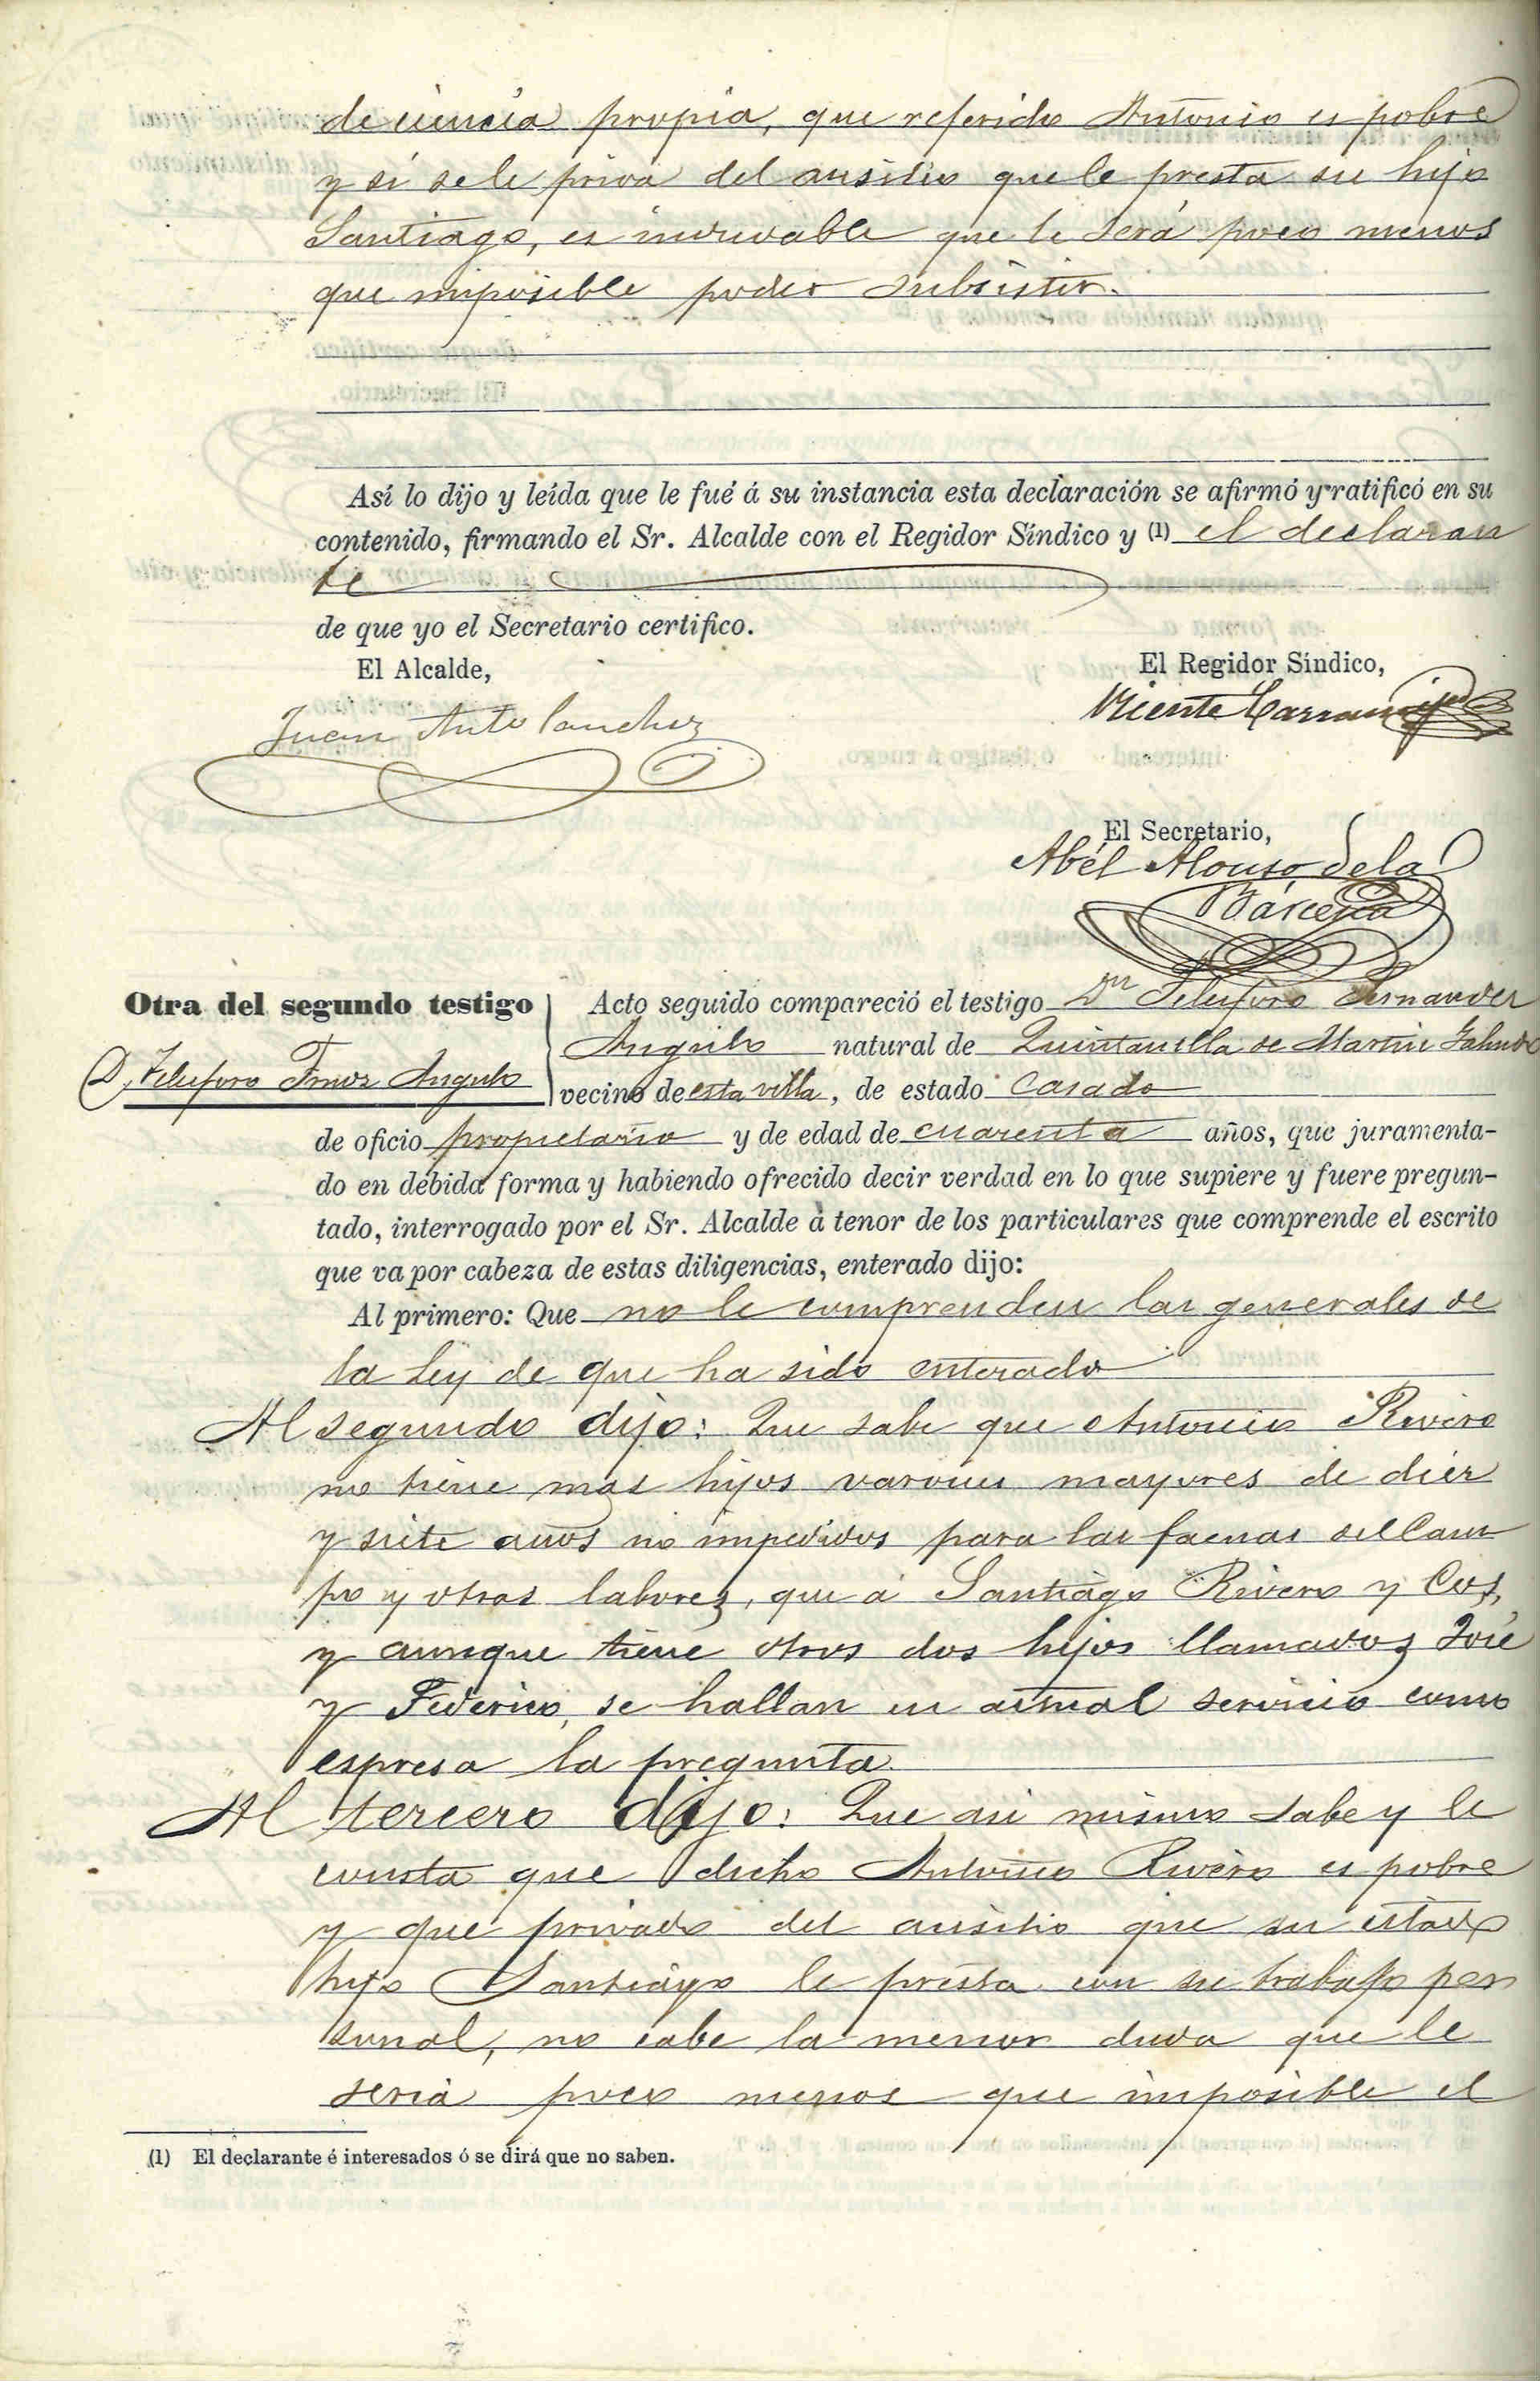 de ciencia propia, que referido Antonio es pobre
y si se le priva del ausilio que le presta su hijo
Santiago, es indudable que le será poco menos
que imposible poder subsistir.
Así lo dijo y leída que le fué á su instancia esta declaración se afirmó y ratificó en su
contenido, firmando el Sr. Alcalde con el Regidor Síndico y (1) el declaran
te
de que yo el Secretario certifico.
El Alcalde,
El Regidor Síndico,
Juan Anto Sanchez
Vicente
El Secretario,
Abél Alonso de la
Bárcena
Otra del segundo testigo
D. Telesforo Frnez Angulo
Acto seguido compareció el testigo Dn Telesforo Fernandez
Angulo natural de Quintanilla de Martin Galindo
vecino de esta villa, de estado Casado
de oficio propietario y de edad de cuarenta años, que juramenta-
do en debida forma y habiendo ofrecido decir verdad en lo que supiere y fuere pregun-
tado, interrogado por el Sr. Alcalde à tenor de los particulares que comprende el escrito
que va por cabeza de estas diligencias, enterado dijo:
Al primero: Que no le comprenden las generales de
la Ley de que ha sido enterado
Al segundo dijo: Que sabe que Antonio Rivero
no tiene mas hijos varones mayores de diez
y siete años no impedidos para las faenas del Cam
po y otras labores, que á Santiago Rivero y Cos,
y aunque tiene otros dos hijos llamados José
y Federico, se hallan en actual servicio como
espresa la pregunta.
Al tercero dijo: Que asi mismo sabe y le
consta que dicho Antonio Rivero es pobre
y que privado del ausilio que su citado
hijo Santiago le presta con su trabajo per
sonal, no cabe la menor duda que le
seria poco menos que imposible el
(1) El declarante é interesados ó se dirá que no saben.